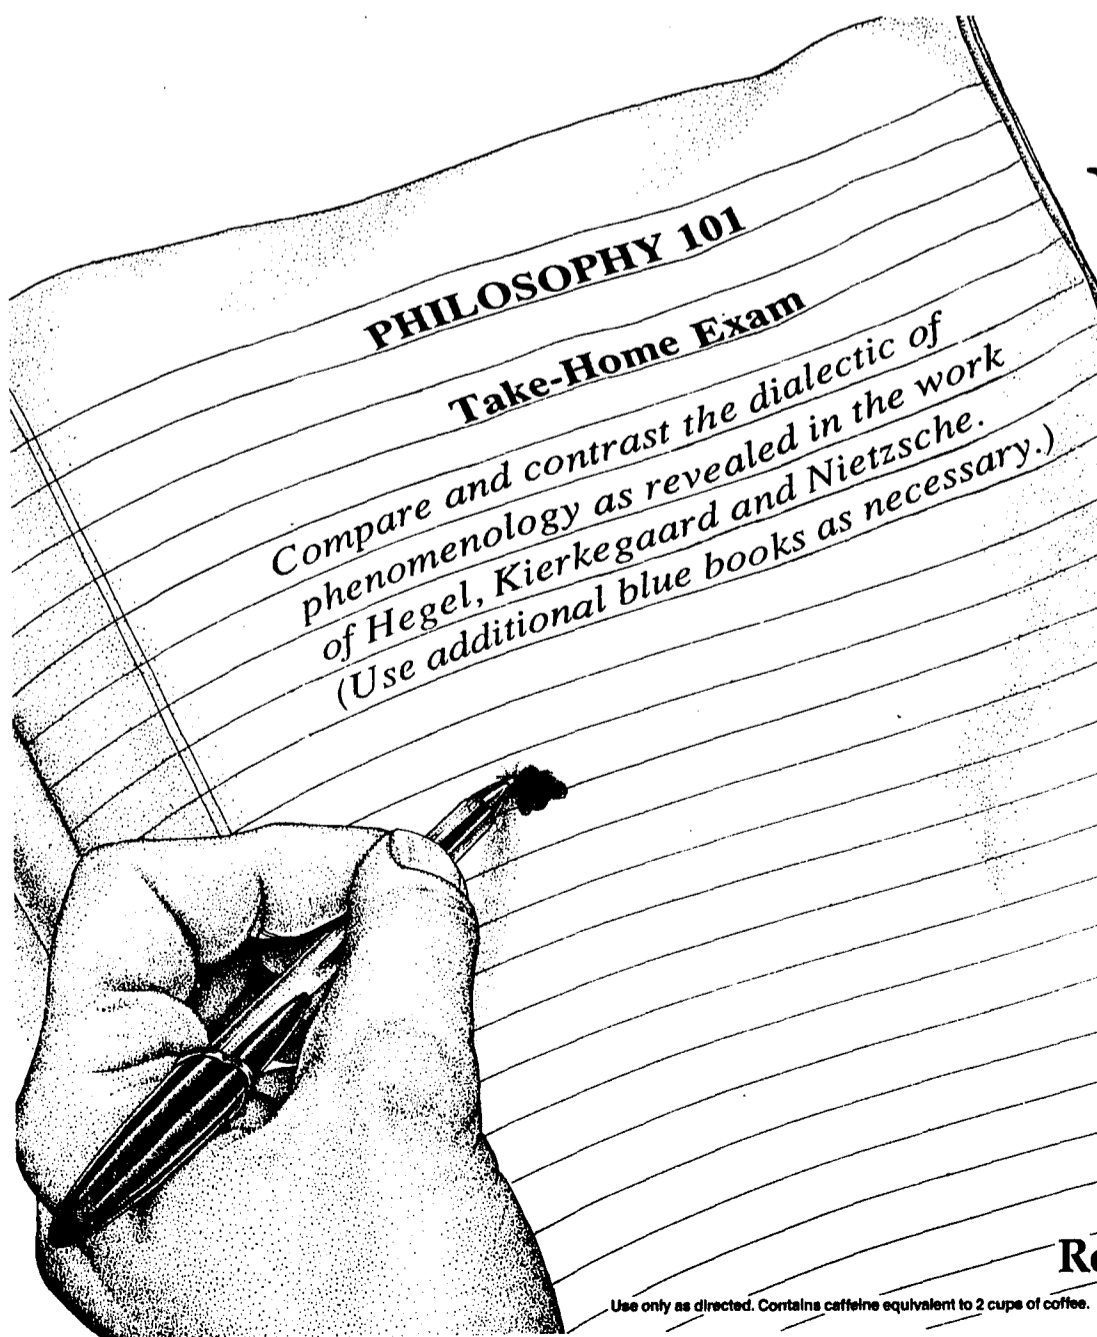 PHILOSOPHY 101
Take-Home Exam
Compare and contrast the dialectic of
phenomenology as revealed in the work
of Hegel, Kierkegaard and Nietzsche.
(Use additional blue books as necessary.)
Use only as directed. Contains caffeine equivalent to 2 cups of coffee.